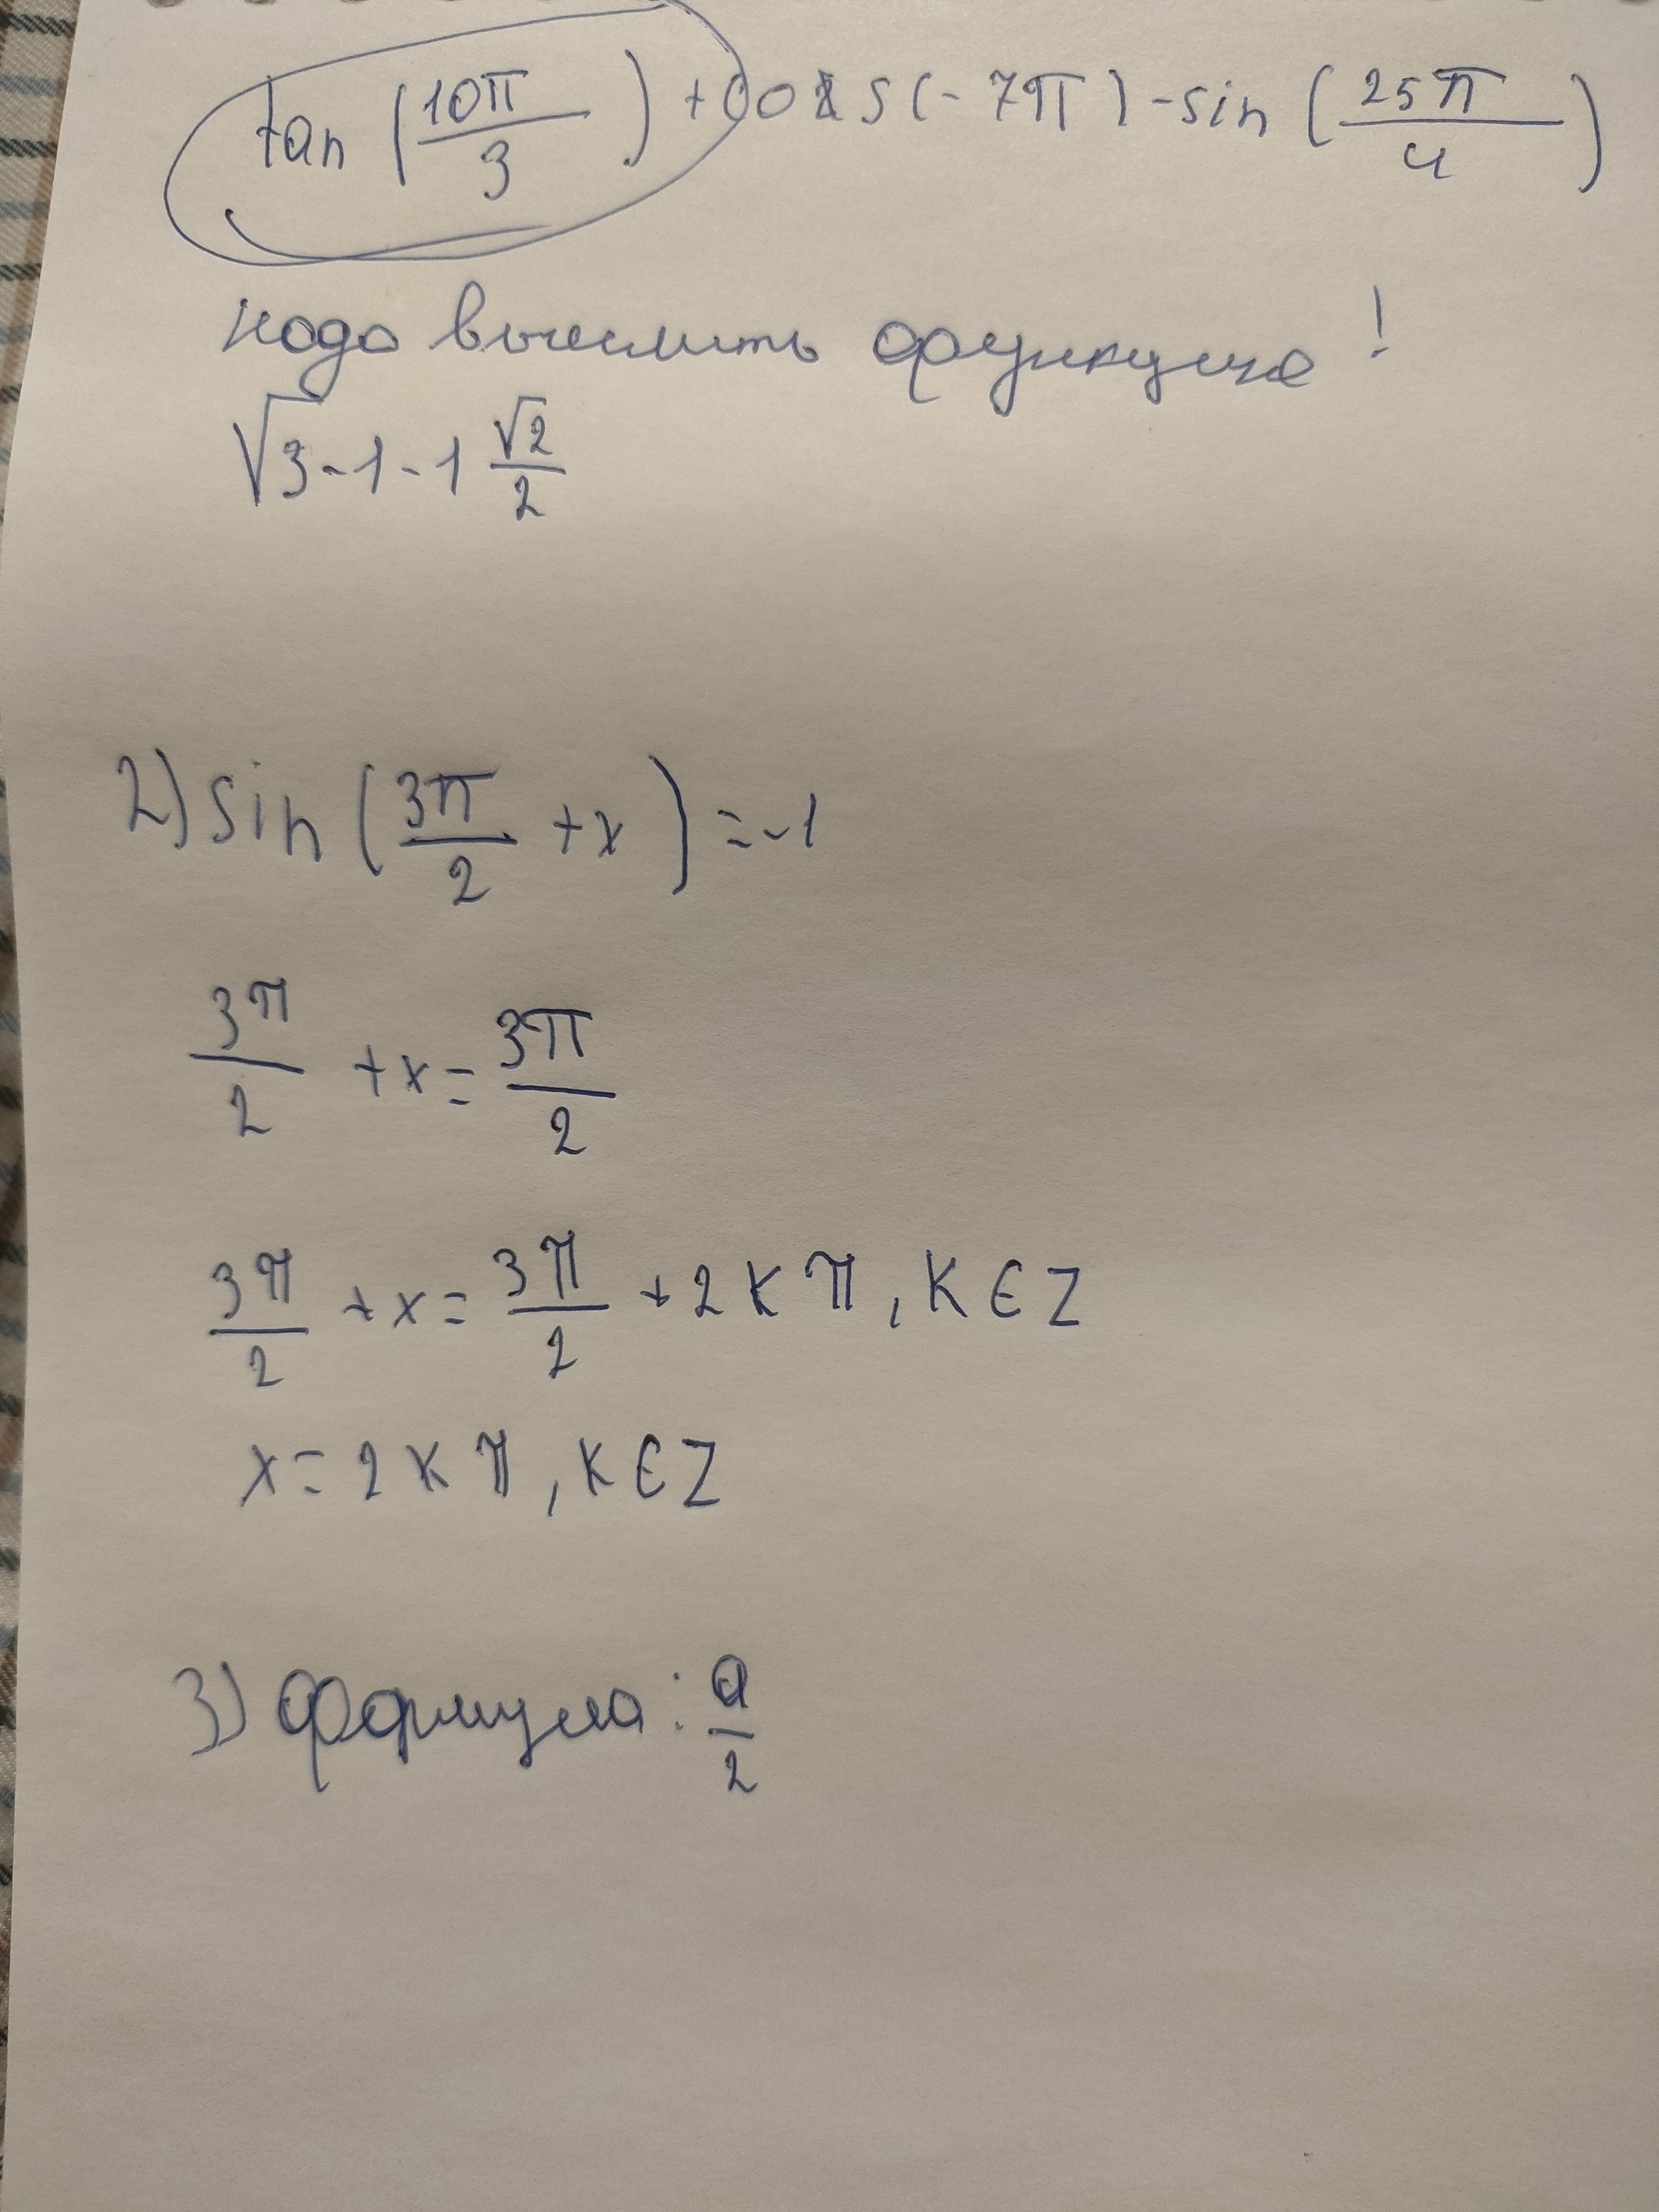 tan (10π/3) + cos(-7π) - sin (25π/4)
надо вычеслить функцие!
√3 - 1 - 1 √2/2
2) sin (3π/2 + x) = -1
3π/2 + x = 3π/2
3π/2 + x = 3π/2 + 2kπ, k ∈ Z
x = 2kπ, k ∈ Z
3) формула: a/2